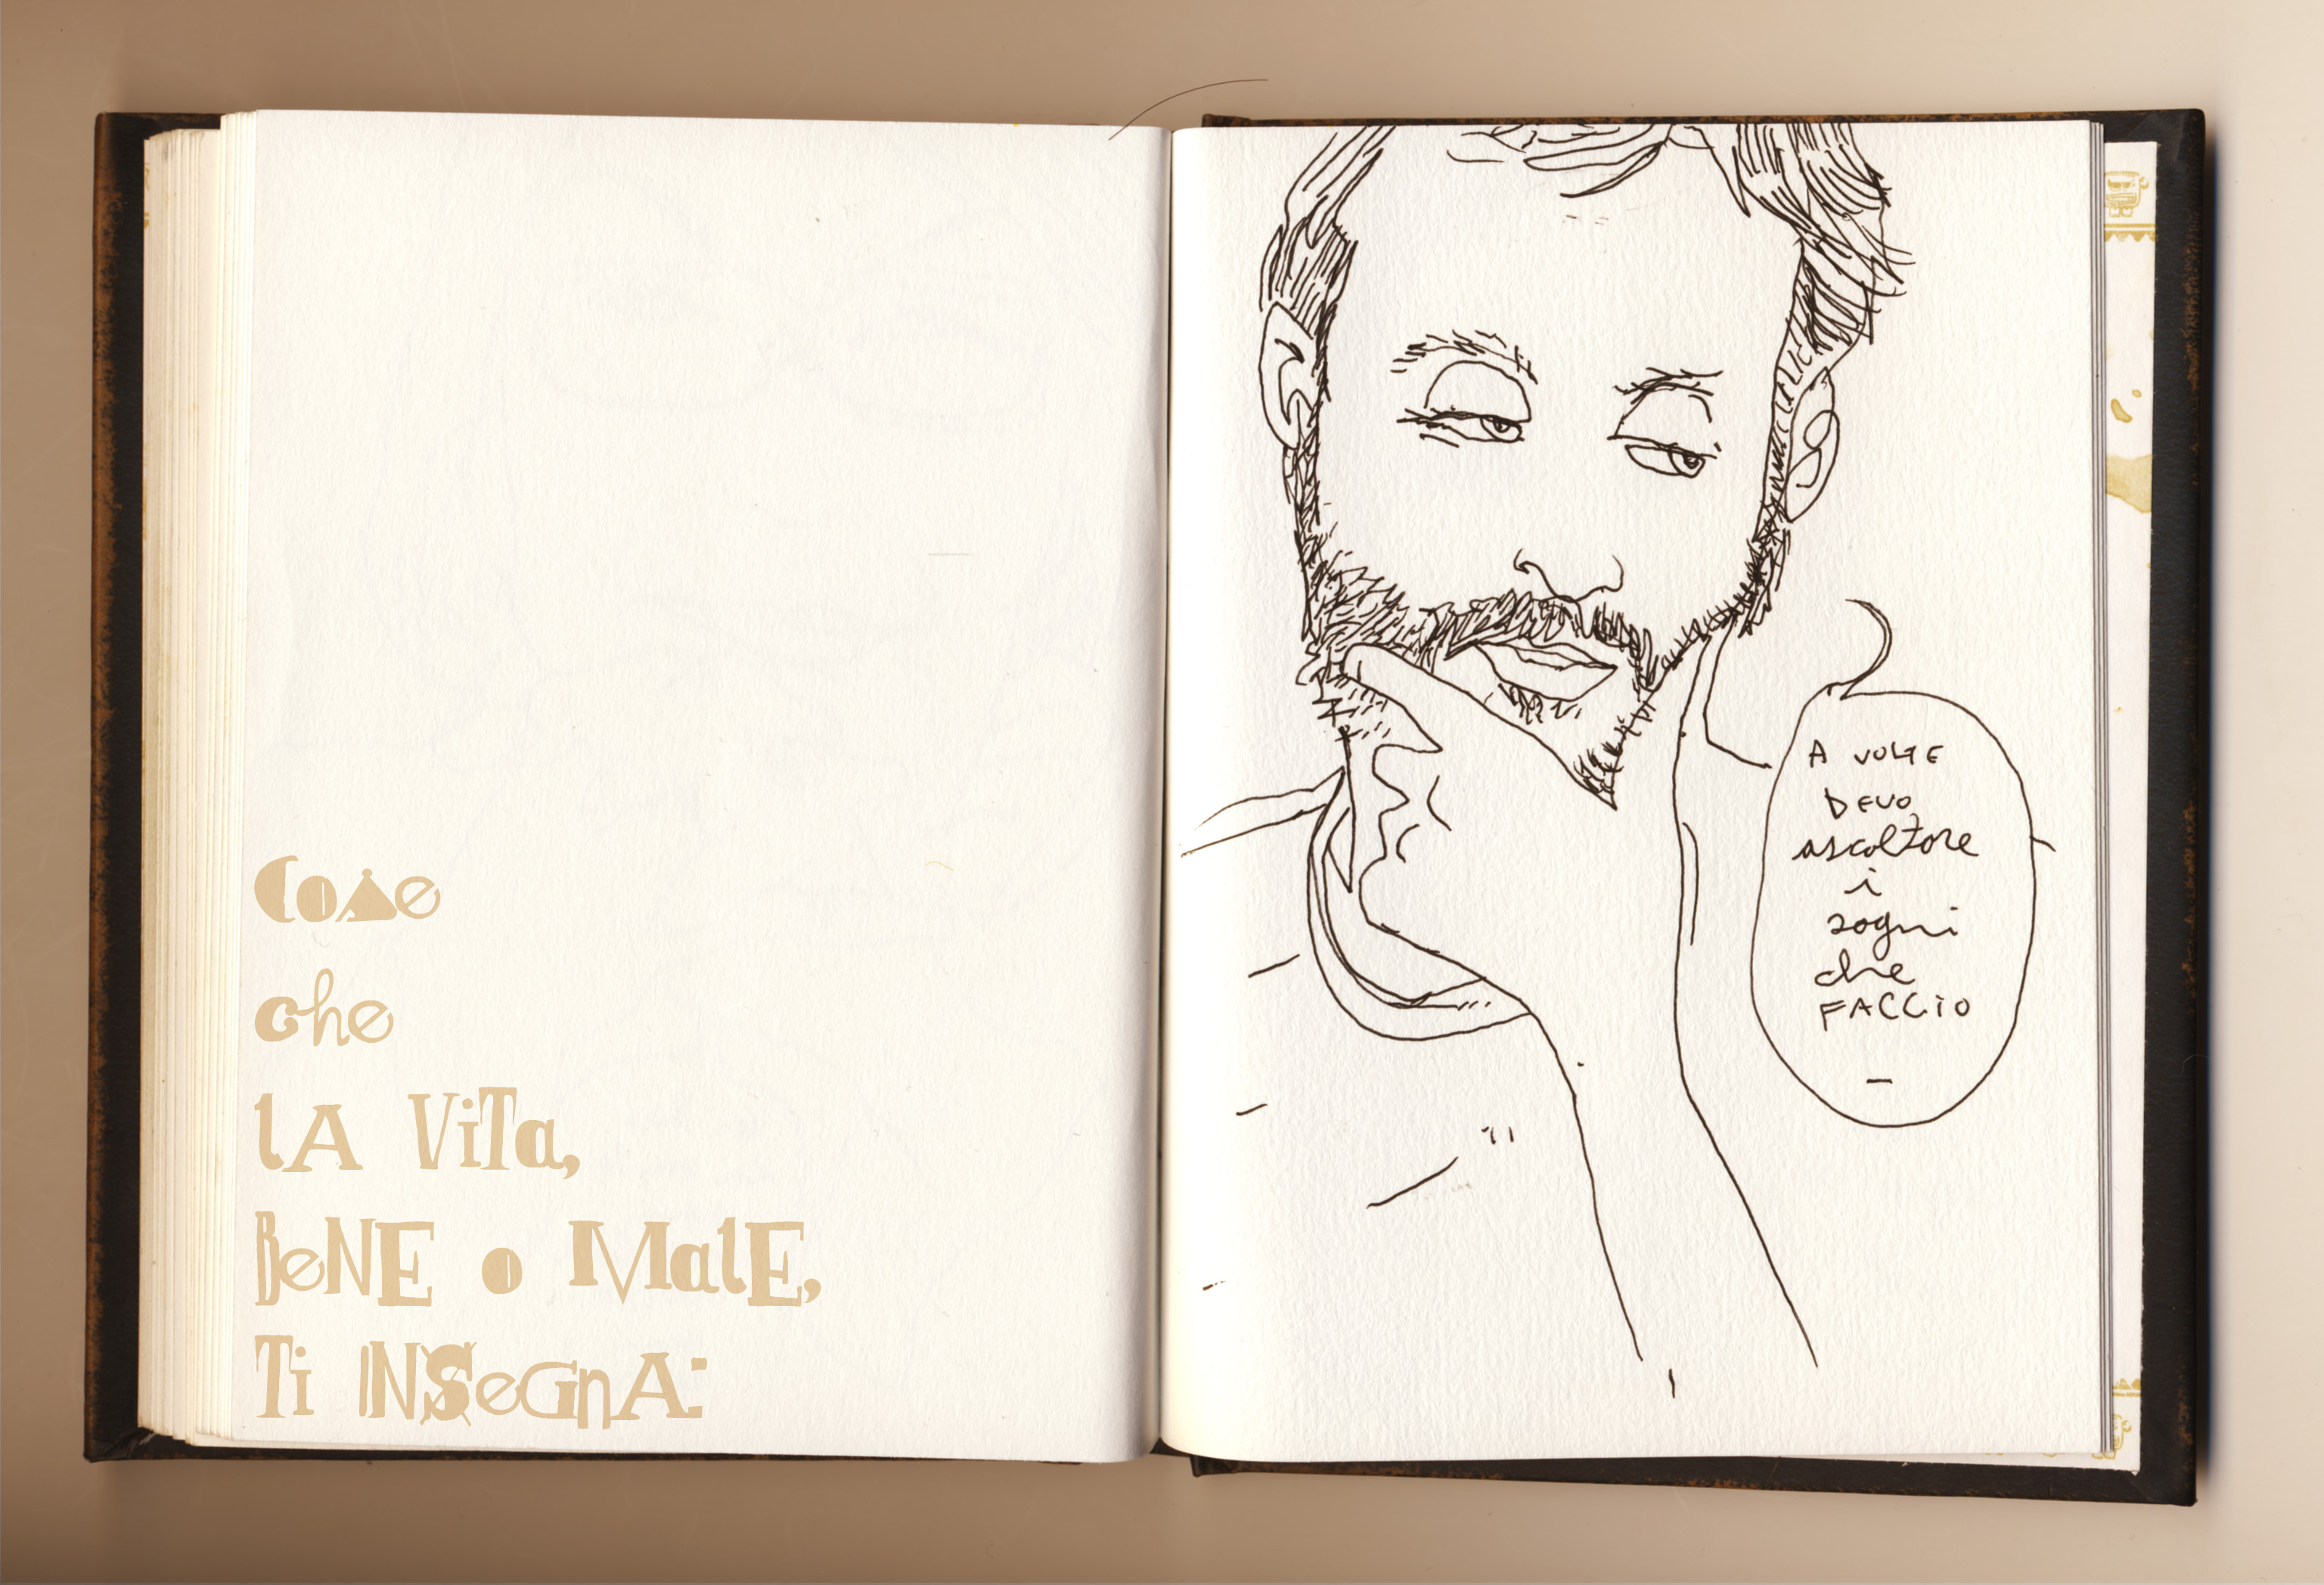 Cose
che
lA ViTa,
BeNE o MalE,
Ti INSeGnA:
A VOLTE
DEVO
ascoltare
i
sogni
che
FACCiO